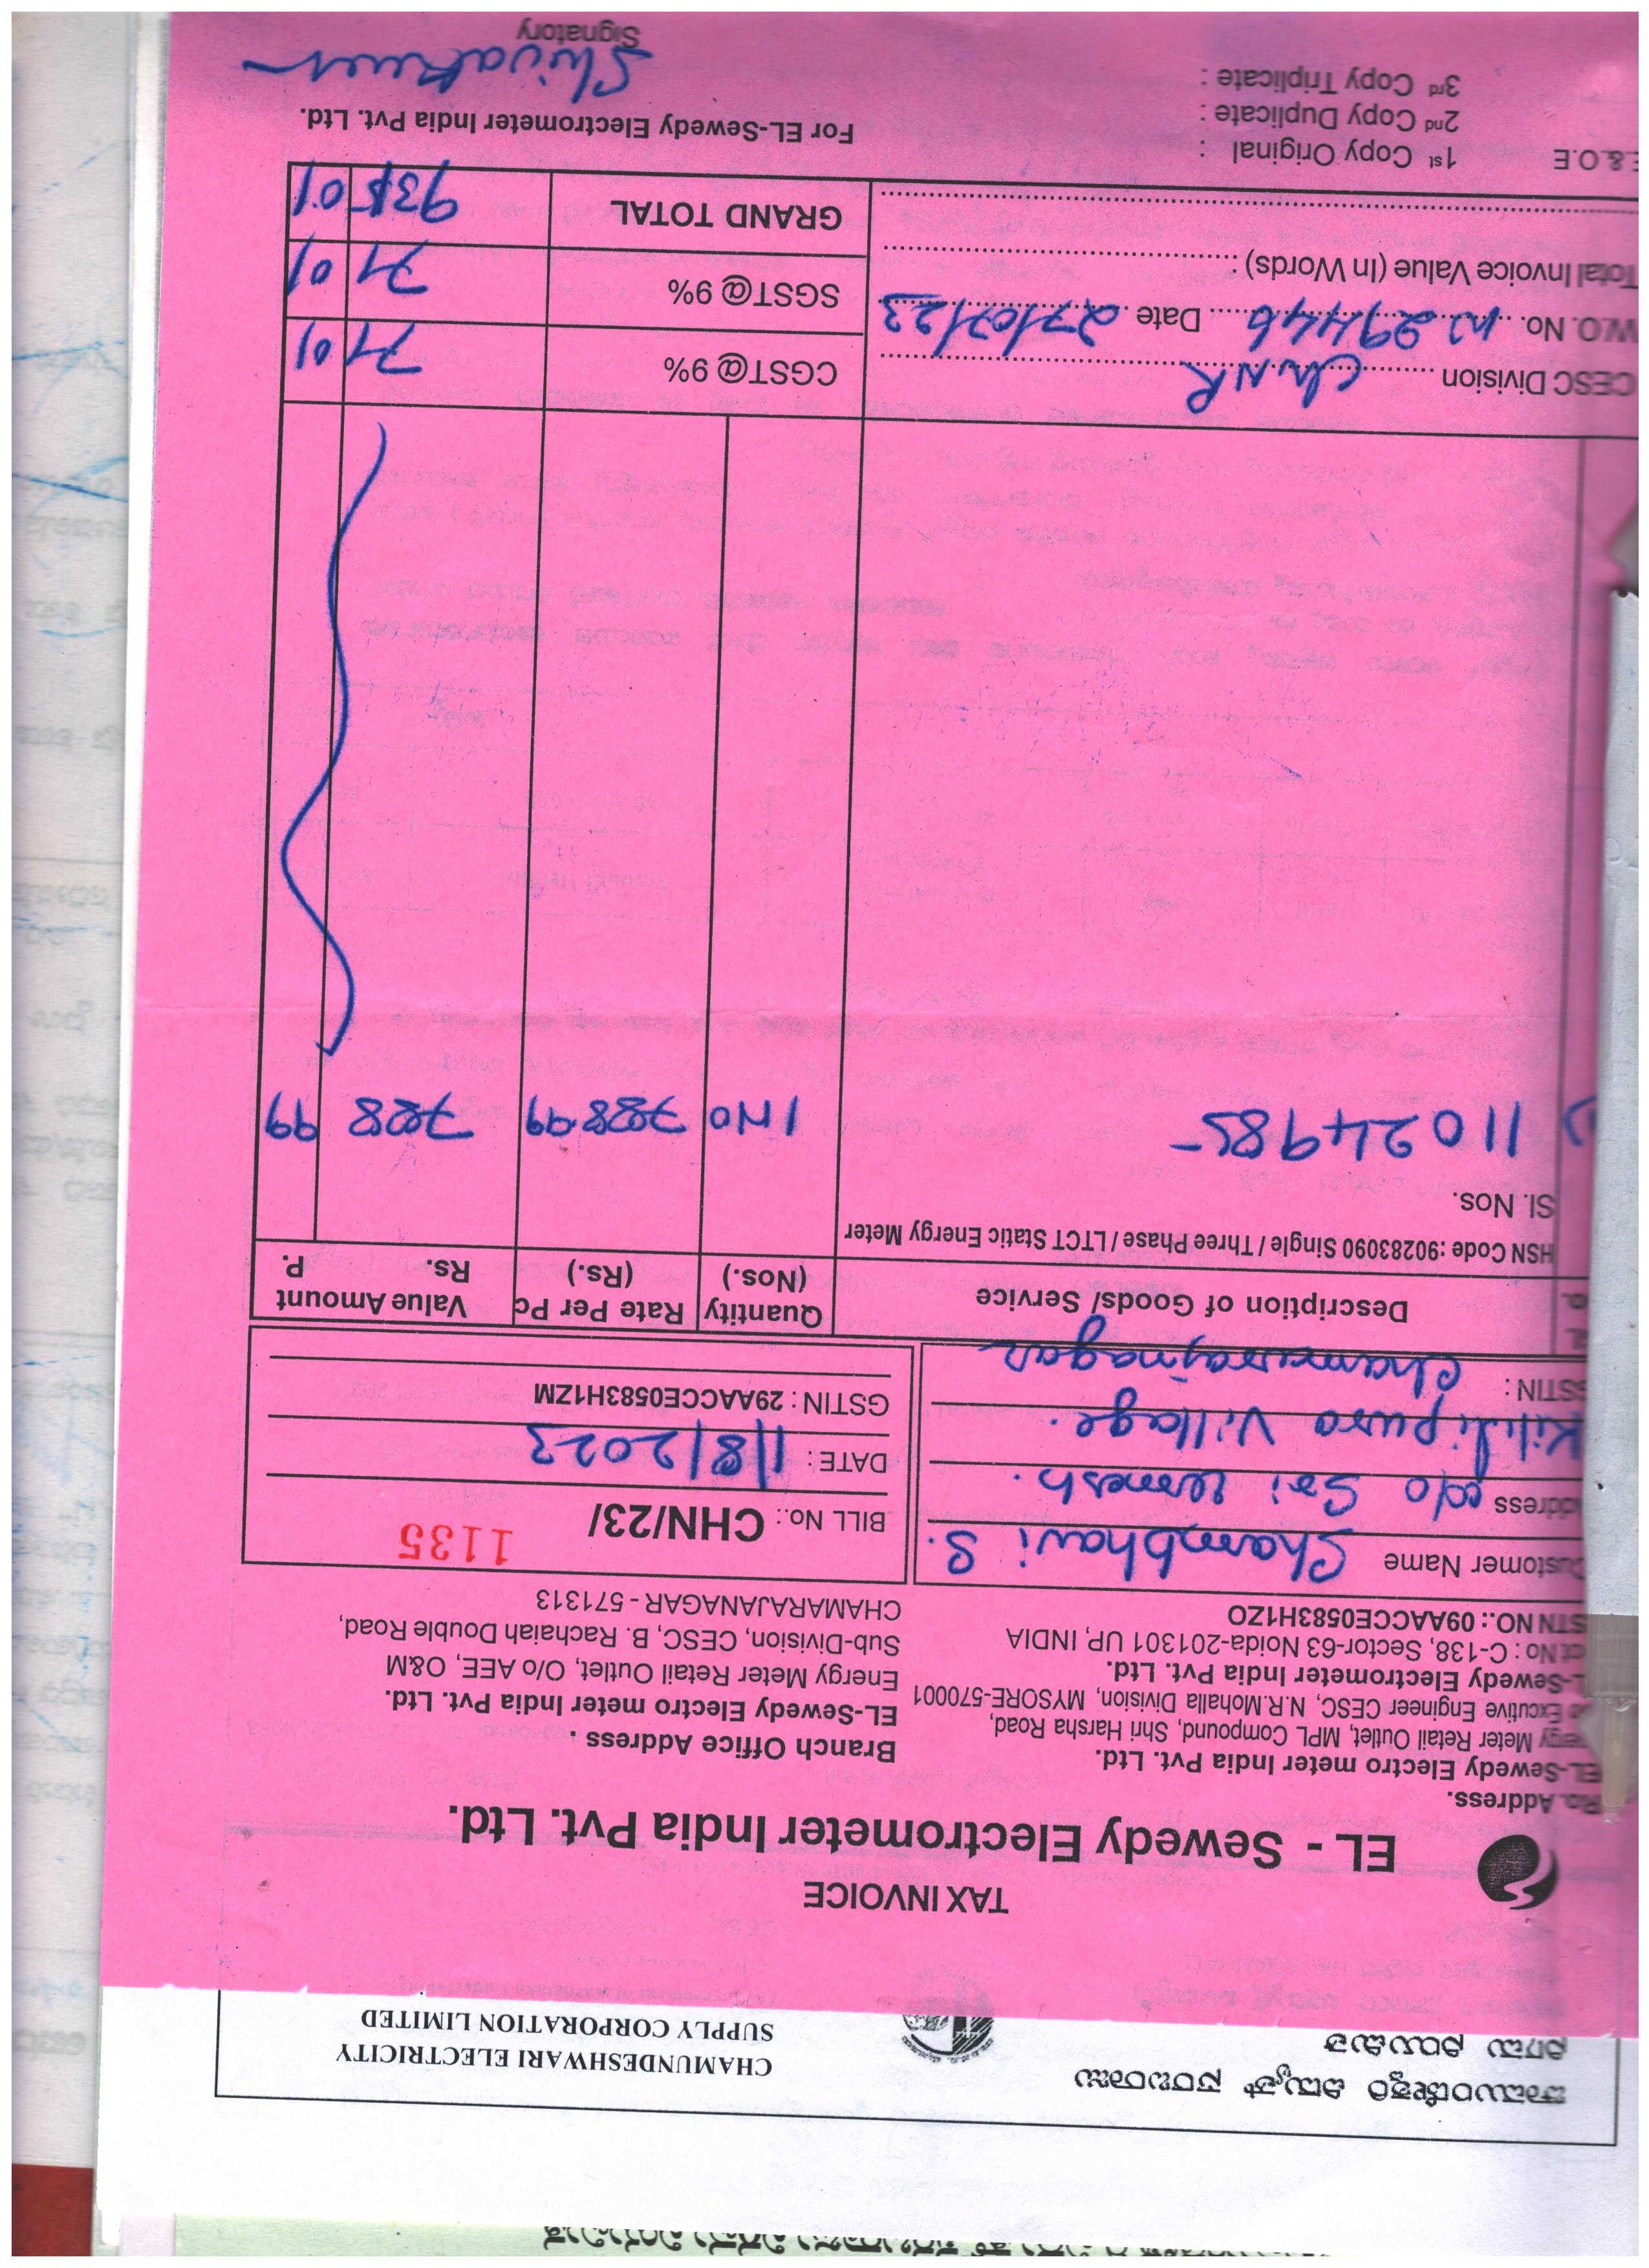 ಚಾಮುಂಡೇಶ್ವರಿ ವಿದ್ಯುತ್ ಸರಬರಾಜು
ನಿಗಮ ನಿಯಮಿತ
CHAMUNDESHWARI ELECTRICITY
SUPPLY CORPORATION LIMITED
TAX INVOICE
EL - Sewedy Electrometer India Pvt. Ltd.
Address.
EL-Sewedy Electro meter India Pvt. Ltd.
Meter Retail Outlet, MPL Compound, Shri Harsha Road,
Excutive Engineer CESC, N.R.Mohalla Division, MYSORE-570001
L-Sewedy Electrometer India Pvt. Ltd.
No : C-138, Sector-63 Noida-201301 UP, INDIA
STN NO.: 09AACCE0583H1ZO
Branch Office Address :
EL-Sewedy Electro meter India Pvt. Ltd.
Energy Meter Retail Outlet, O/o AEE, O&M
Sub-Division, CESC, B. Rachaiah Double Road,
CHAMARAJANAGAR - 571313
Customer Name Shambhavi S.
ddress c/o Sri Umesh.
Kilidipura Village.
STIN : Chamarajnagar
BILL No.: CHN/23/ 1135
DATE : 1/8/2023
GSTIN : 29AACCE0583H1ZM
Description of Goods/ Service
Quantity (Nos.)
Rate Per Pc (Rs.)
Value Amount
Rs. P.
HSN Code :90283090 Single / Three Phase / LTCT Static Energy Meter
Sl. Nos.
11024985 1 No 788.99 788 99
CESC Division ChNR
W.O. No. W 29446 Date 27/07/23
Total Invoice Value (In Words) :
CGST@ 9% 71 01
SGST@ 9% 71 01
GRAND TOTAL 931 01
E.&.O.E
1st Copy Original :
2nd Copy Duplicate :
3rd Copy Triplicate :
For EL-Sewedy Electrometer India Pvt. Ltd.
Signatory